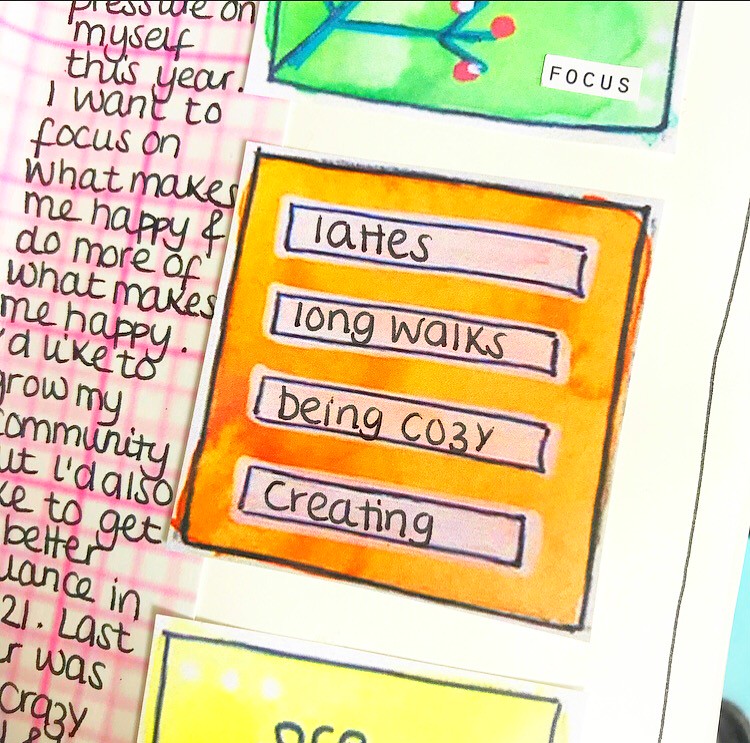 pressure on
myself
this year.
I want to
focus on
what makes
me happy &
do more of
what makes
me happy.
I'd like to
grow my
community
but I'd also
like to get
better
balance in
21. Last
was
crazy
FOCUS
lattes
long walks
being cozy
Creating